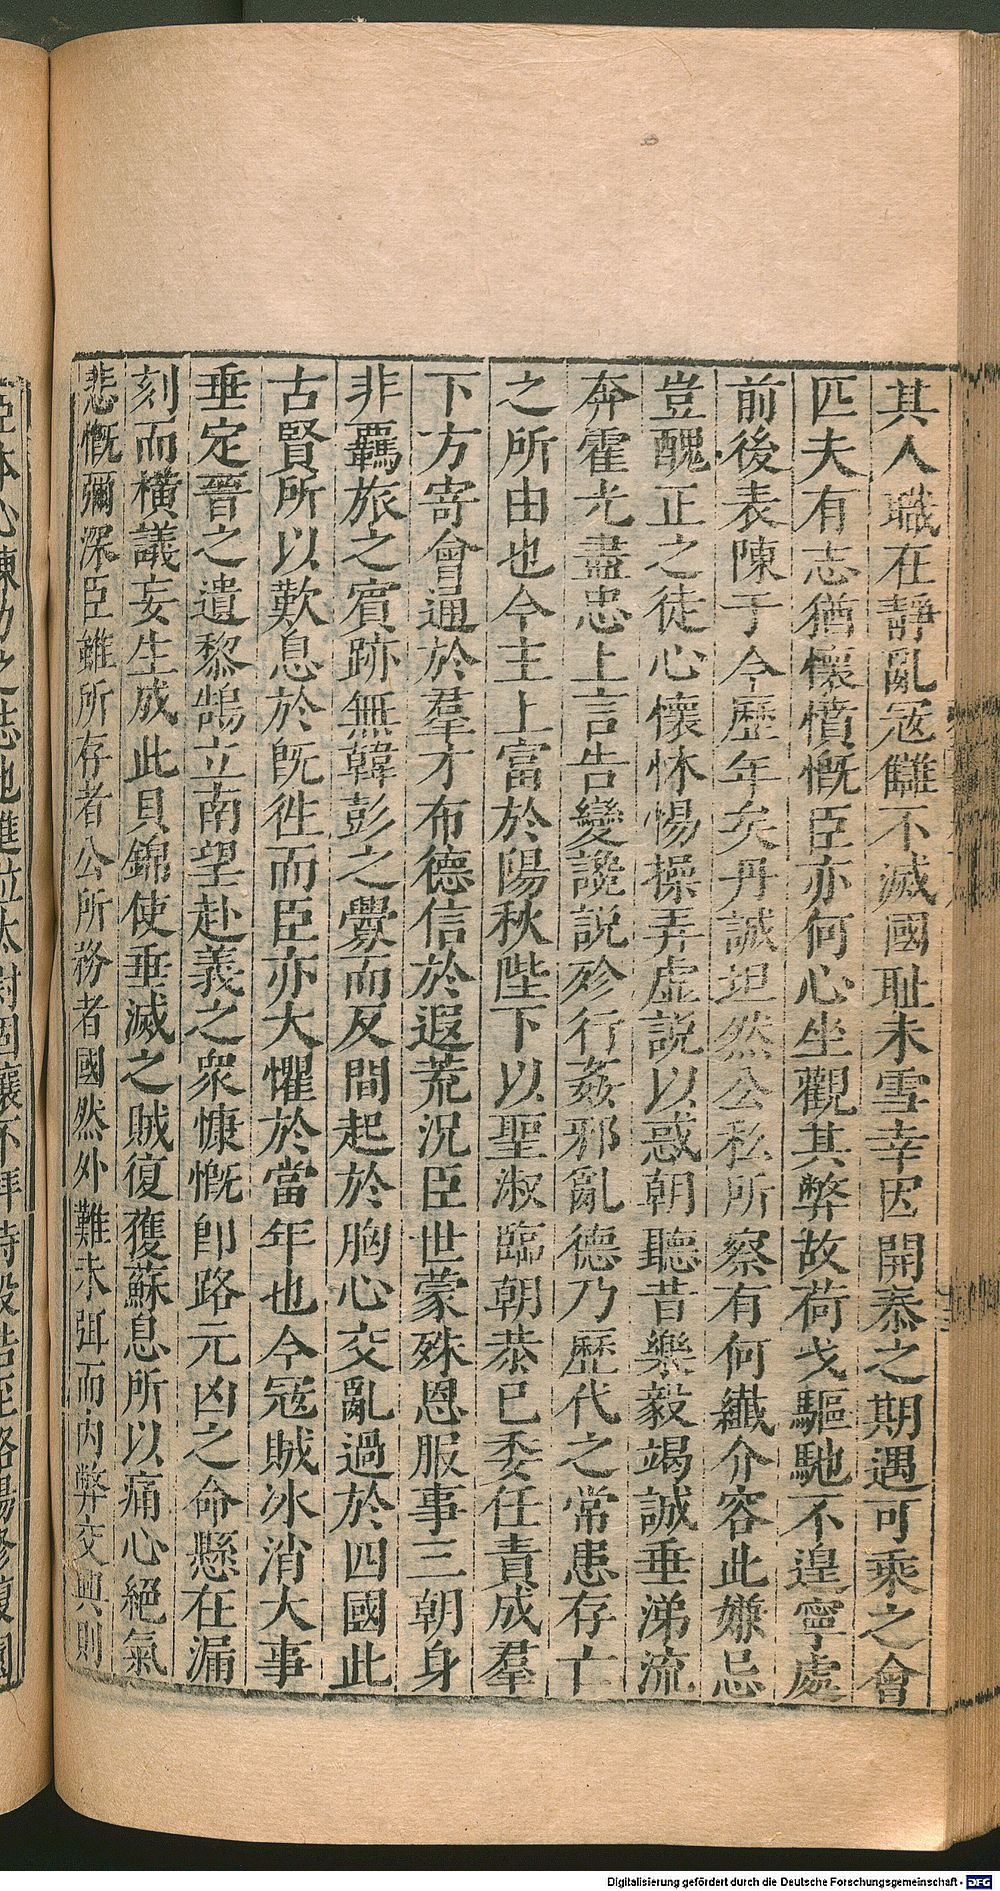 其人職在靜亂冦讎不滅國耻未雪幸因開泰之期遇可乘之會
匹夫有志猶懷憤慨臣亦何心坐觀其弊故荷戈驅馳不遑寧處
前後表陳于今歷年矣丹誠坦然公私所察有何纖介容此嫌忌
豈醜正之徒心懷怵惕操弄虛説以惑朝聽昔樂毅竭誠垂涕流
奔霍光盡忠上言告變讒説殄行姦邪亂德乃歷代之常患存亡
之所由也今主上富於陽秋陛下以聖淑臨朝恭已委任責成羣
下方寄會通於羣才布德信於遐荒況臣世蒙殊恩服事三朝身
非羈旅之賓跡無韓彭之釁而反間起於胸心交亂過於四國此
古賢所以歎息於既徃而臣亦大懼於當年也今冦賊冰消大事
垂定晉之遺黎鵠立南望赴義之衆慷慨即路元凶之命懸在漏
刻而橫議妄生成此貝錦使垂滅之賊復獲蘇息所以痛心絕氣
悲慨彌深臣雖所存者公所務者國然外難未弭而内弊交興則
Digitalisierung gefördert durch die Deutsche Forschungsgemeinschaft - DFG